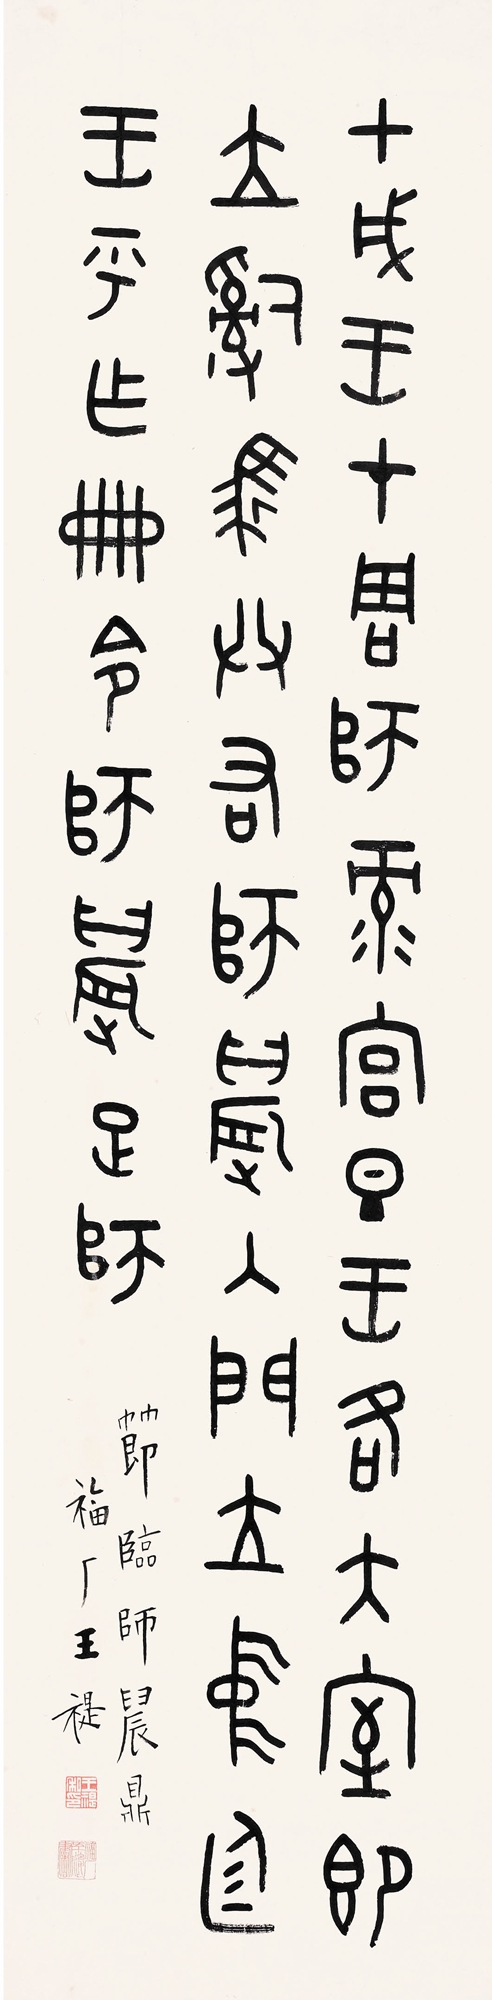 甲戌王才周師彔宮旦王各大室即
立嗣馬共右師晨入門立中廷
王乎乍冊令師晨疋師
節臨師晨鼎
福厂王禔